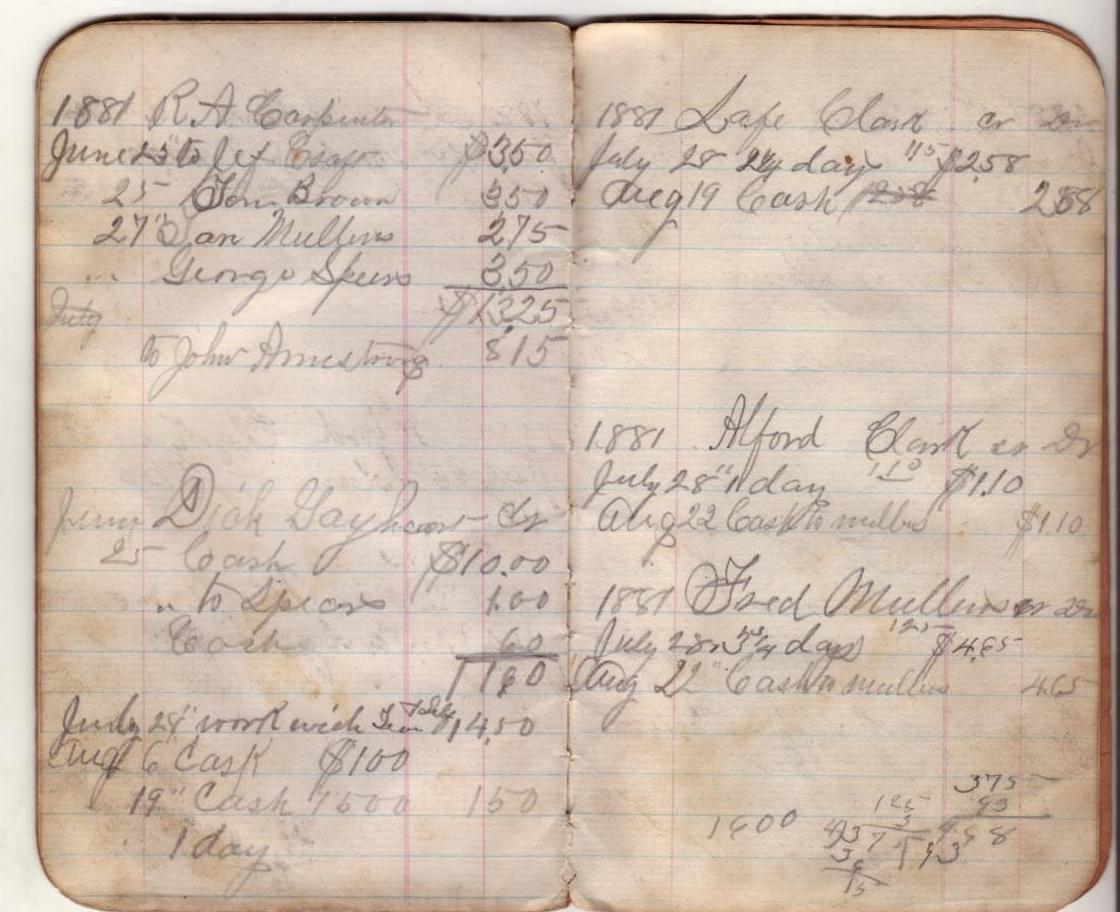 1881 R A Carpenter
June 25 to $3.50
25 Tom Brown 350
27" Dan Mullins 275
" George Spears 3.50
$13.25
July
to John Armstrong 815
June Dick Gayheart Dr
25 Cash $10.00
" to Spears 1.00
Cash 60
1160
July 28" work with Team 14.50
Aug 6 Cash $100
19" Cash 150
1 day
1881 Lafe Clark cr Dr
July 28 2¼ day 115 $2.58
Aug 19 Cash 258 258
1881 Alford Clark cr Dr
July 28" 1 day 1.10 $1.10
Aug 22 Cash to mullins $1.10
1881 Fred Mullins cr Dr
July 28" 3¾ days 125 $4.65
Aug 22" Cash to mullins 465
375
93
125
3
1600